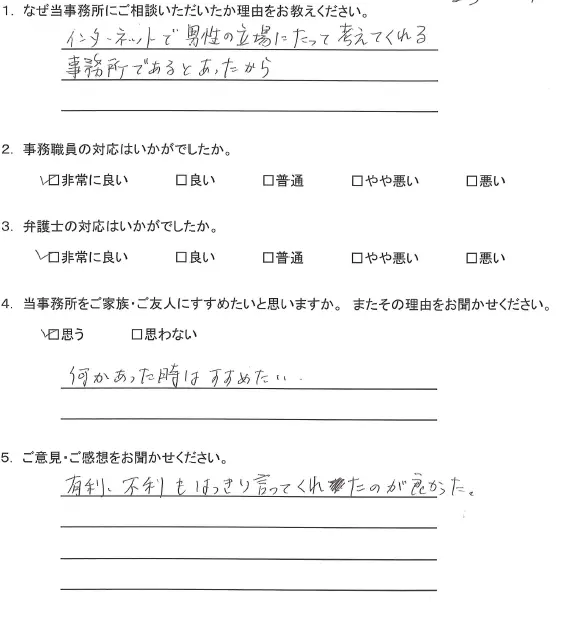 1. なぜ当事務所にご相談いただいたか理由をお教えください。
インターネットで男性の立場にたって考えてくれる
事務所であるとあったから
2. 事務職員の対応はいかがでしたか。
☑非常に良い □良い □普通 □やや悪い □悪い
3. 弁護士の対応はいかがでしたか。
☑非常に良い □良い □普通 □やや悪い □悪い
4. 当事務所をご家族・ご友人にすすめたいと思いますか。 またその理由をお聞かせください。
☑思う □思わない
何かあった時はすすめたい.
5. ご意見・ご感想をお聞かせください。
有利、不利もはっきり言ってくれたのが良かった。